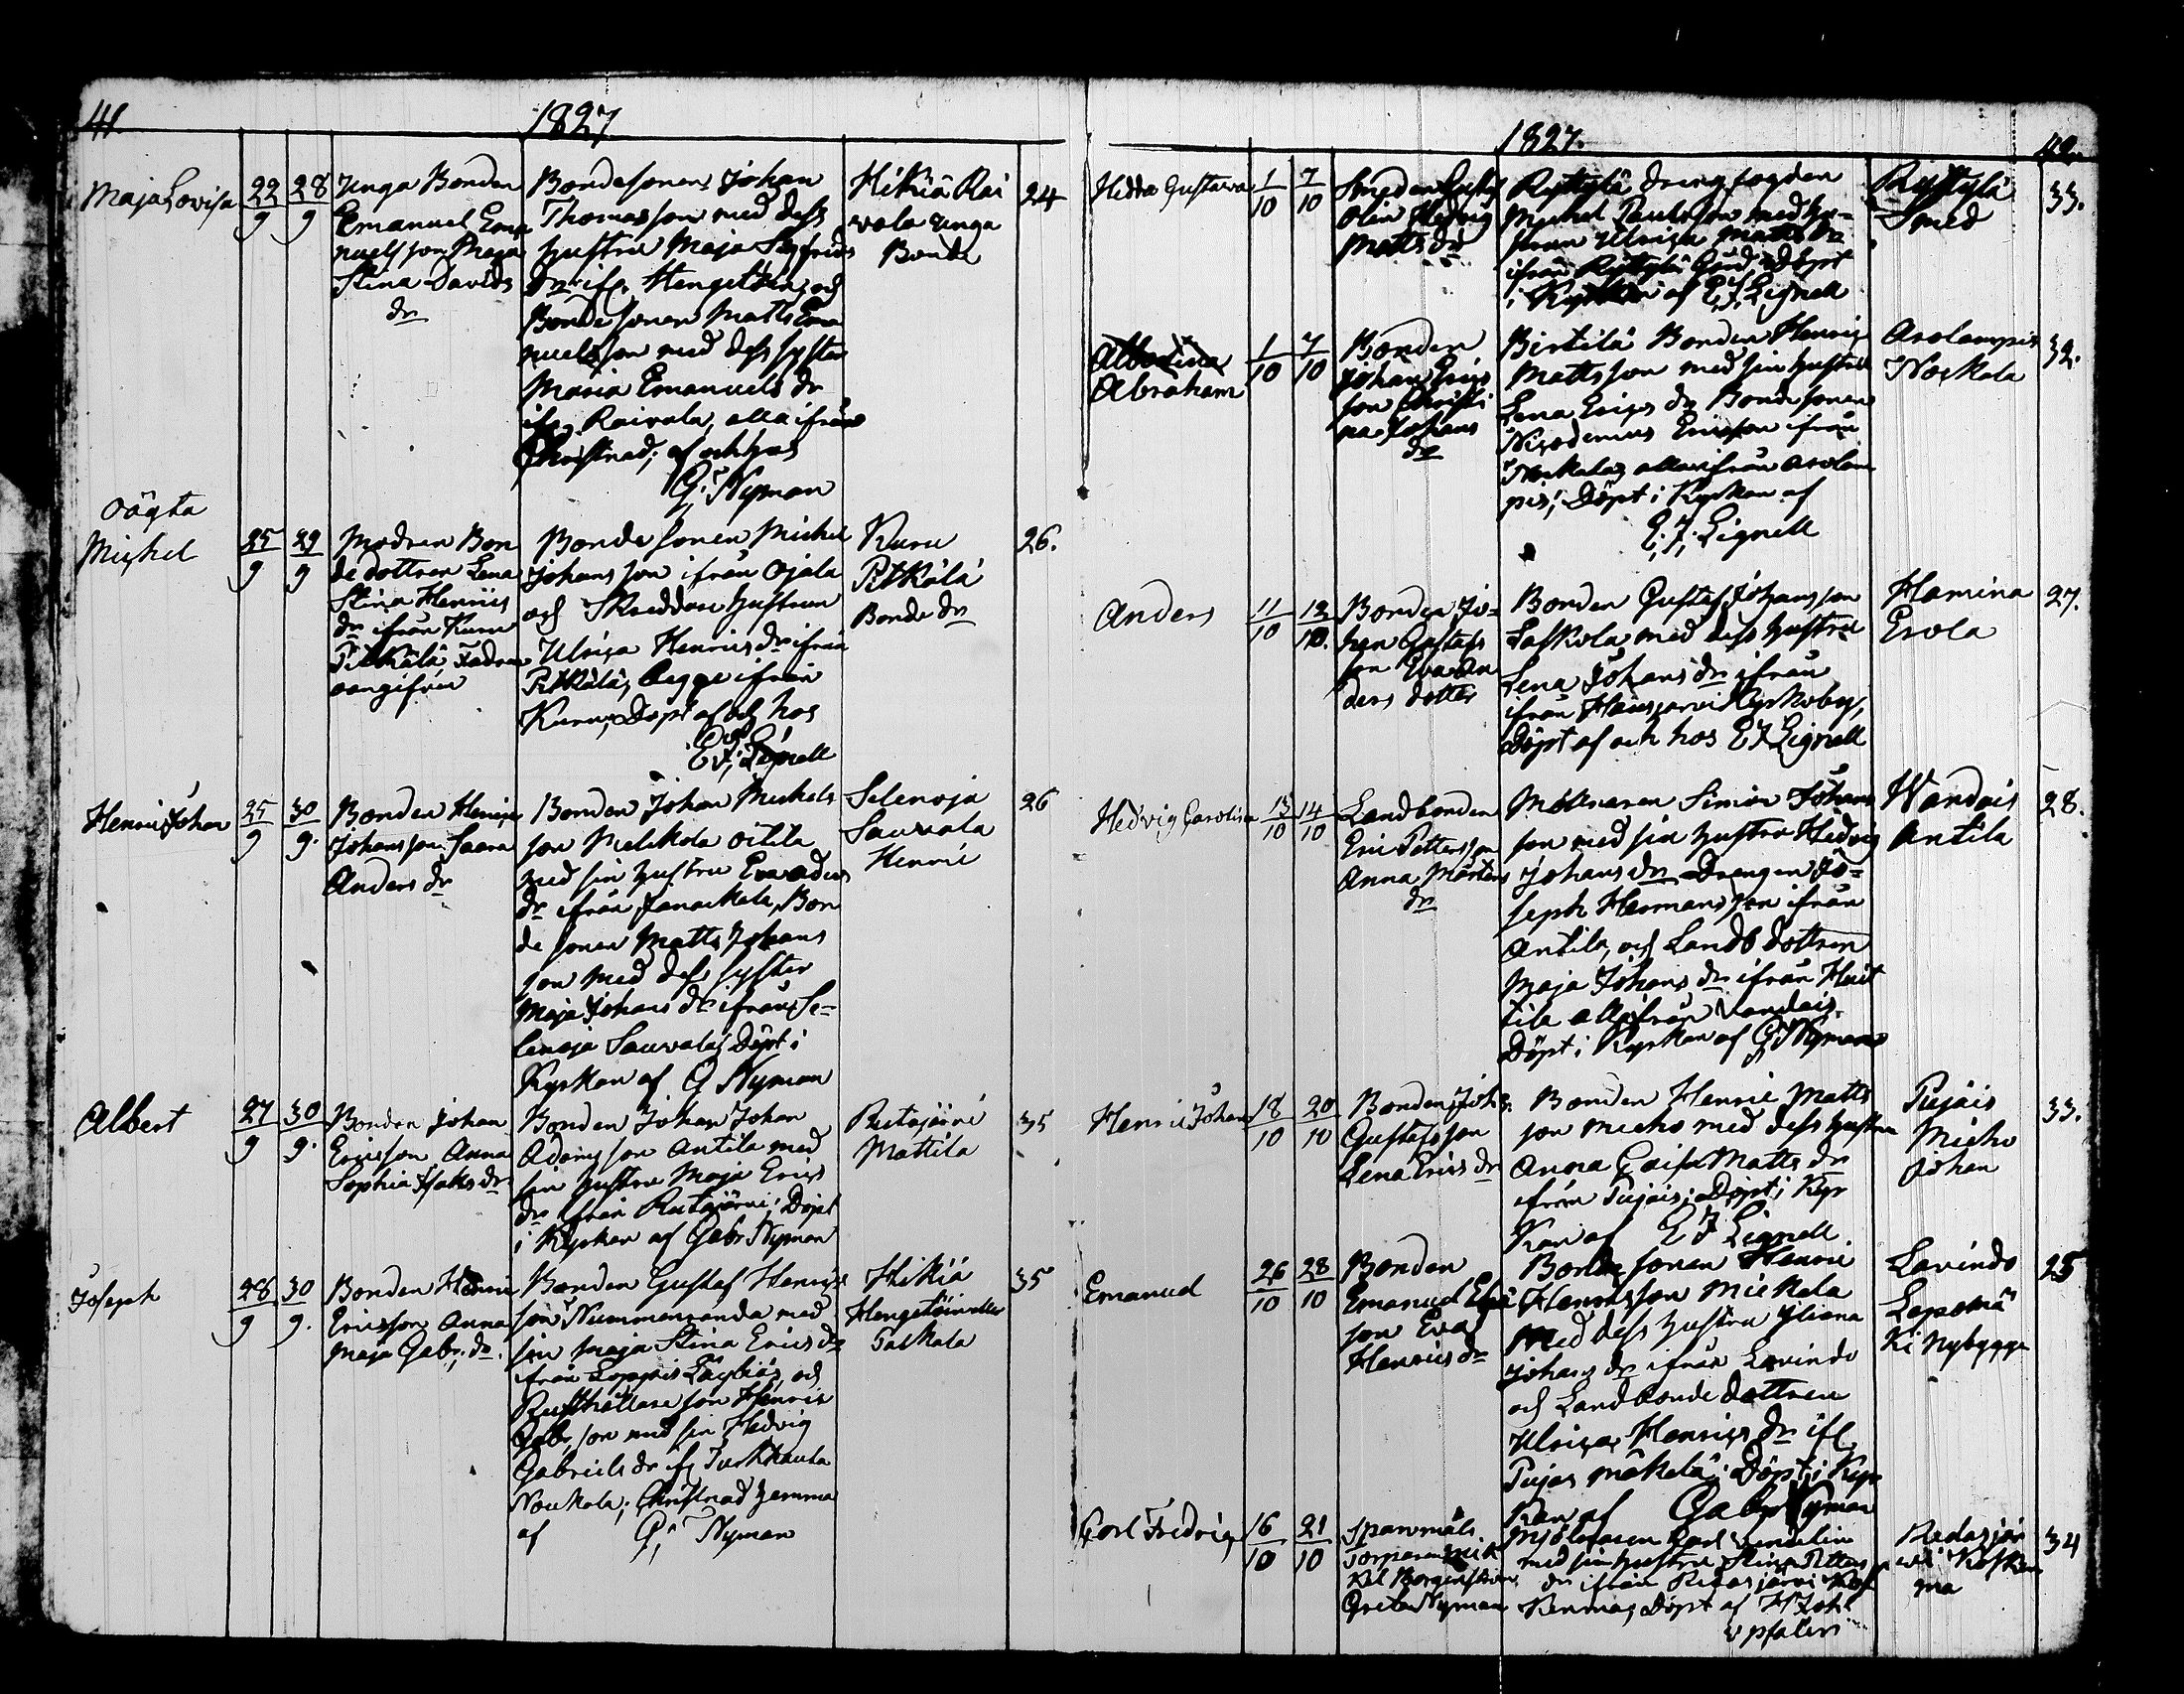 41.
1827
Maja Lovisa 22/9 28/9
Unga Bonden
Emanuel Ema
nuelsson Maja
Stina Davids
dr
Bondesonen Johan
Thomasson med dess
hustru Maja Sigfrids
dr ifr. Hengetöin, och
Bonde sonen Matts Ema
nuelsson med dess syster
Maria Emanuels dr
ifr Raivala, alla ifrån
Christnad, af och hos
G. Nyman
Hikiä Rai
vala unga
Bonde
24
oägta
Michel 25/9 29/9
Modren Bon
de dottren Lena
Stina Henrics
dr ifrån Kuru
Pitkälä, Fadren
oangifven
Bonde sonen Michel
Johansson ifrån Ojala
och Skreddare hustrun
Ulrica Henrics dr ifrån
Pitkälä, begge ifrån
Kuru, Döpt af och hos
E. F. Lignell
Kuru
Pitkälä
Bonde dr
26.
Henric Johan 25/9 30/9.
Bonden Henric
Johansson Saara
Anders dr
Bonden Johan Michels
son Oitila
med sin hustru Eva
dr ifrån Janackala, Bon
de sonen Matts Johans
son med dess syster
Maja Johans dr ifrån Se-
lenoja Sauvala, Döpt i
Kyrkan af G Nyman
Selenoja
Sauvala
Henric
26
Albert 27/9 30/9.
Bonden Johan
Ericsson Anna
Sophia Isaks dr
Bonden Johan Johan
Adamsson Antila med
sin hustru Maja Erics
dr ifrån Rutajärvi; Döpt
i Kyrkan af Gabr Nyman
Rutajärvi
Mattila
35
Joseph 28/9 30/9.
Bonden Henric
Ericsson Anna
Maja Gabr. dr.
Bonden Gustaf Henrics
son Nummenranda med
sin Maja Stina Erics dr
ifrån Loppis och
Rusthållare son Henric
Gabr. son med sin Hedvig
Gabriels dr ifr Turkhauta
Noukala; Christnad hemma
af G. Nyman
Hikiä
Hengetöin eller
Salkala
35
1827.
42.
Hedda Gustava 1/10 7/10
Smeden Gustaf
Olin Hedvig
Matts dr
Ryttylä drengfogden
Michel Paulsson med hu-
strun Ulrica Matts dr
ifrån Ryttylä Gård, Döpt
i Kyrkan af E. F. Lignell
Ryttylä
Smed
33.
Abraham 1/10 7/10
Bonden
Johan Erics
son Christi
na Johans
dr
Birtilä Bonden Henric
Mattsson med sin hustru
Lena Erics dr Bonde sonen
Nicodemus Ericsson ifrån
Nockala, alla ifrån Arolam
pis; Döpt i Kyrkan af
E. F. Lignell
Arolampis
Nockala
32.
Anders 11/10 12/10.
Bonden Jo-
han Gustafs
son Eva An
ders dotter
Bonden Gustaf Johansson
Laskola med dess hustru
Lena Johans dr ifrån
ifrån Hausjärvi Kyrkoby,
Döpt af och hos E F Lignell
Hamina
Erola
27.
Hedvig Carolina 13/10 14/10
Landbonden
Eric Pettersson
Anna Mårtens
dr
Mölnaren Simon Johans
son med sin hustru Hedvig
Johans dr Drengen Jo-
seph Hermansson ifrån
Antila, och Landb dottren
Maja Johans dr ifrån Huit
tila alla ifrån Vandais.
Döpt i Kyrkan af G Nyman
Wandais
Antila
28.
Henric Johan 18/10 20/10
Bonden Joh.
Gustafsson
Lena Erics dr
Bonden Henric Matts
son Micko med dess hustru
Anna Caisa Matts dr
ifrån Pujais; Döpt i Kyr
kan af E F Lignell.
Pujais
Micko
Johan
33.
Emanuel 26/10 28/10
Bonden
Emanuel
son Eva
Henrics dr
Bonde sonen Henric
Henricsson Mickala
med dess hustru Juliana
Johans dr ifrån Lavindo
och Landbonde dottren
Ulrica Henrics dr ifr
Pujas Mäkelä; Döpt i Kyr
kan af Gabr Nyman
Lavindo
Lepomä
ki Nybygge
25
Carl Fredric 16/10 21/10
Torparen Mic
kel Borgenström
Greta Nyman
Carl Vendelin
med sin hustru Stina Petters
dr ifrån Ridasjärvi Kos
kenma, Döpt af H Joh
Ridasjär
vi Kosken
ma
34